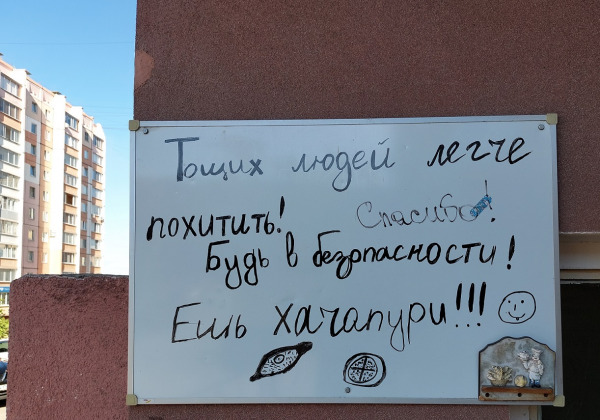 Тощих людей легче
похитить! Спасибо!
Будь в безопасности!
Ешь хачапури!!!